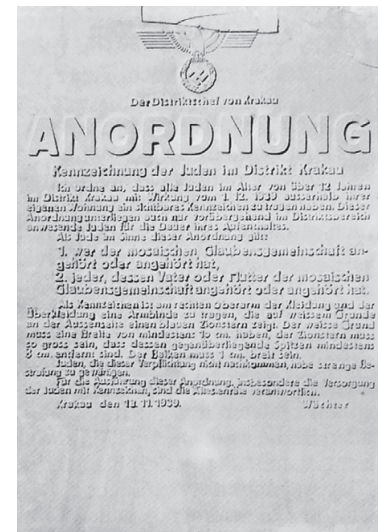 Der Distriktschef von Krakau
ANORDNUNG
Kennzeichnung der Juden im Distrikt Krakau
Ich ordne an, dass alle Juden im Alter von über 12 Jahren
im Distrikt Krakau mit Wirkung vom 1. 12. 1939 ausserhalb ihrer
eigenen Wohnung ein sichtbares Kennzeichen zu tragen haben. Dieser
Anordnung unterliegen auch nur vorübergehend im Distriktsbereich
anwesende Juden für die Dauer ihres Aufenthaltes.
Als Jude im Sinne dieser Anordnung gilt:
1. wer der mosaischen Glaubensgemeinschaft an-
gehört oder angehört hat,
2. jeder, dessen Vater oder Mutter der mosaischen
Glaubensgemeinschaft angehört oder angehört hat.
Als Kennzeichen ist am rechten Oberarm der Kleidung und der
Überkleidung eine Armbinde zu tragen, die auf weissem Grunde
an der Aussenseite einen blauen Zionstern zeigt. Der weisse Grund
muss eine Breite von mindestens 10 cm. haben, der Zionstern muss
so gross sein, dass dessen gegenüberliegende Spitzen mindestens
8 cm. entfernt sind. Der Balken muss 1 cm. breit sein.
Juden, die dieser Verpflichtung nicht nachkommen, haben strenge Be-
strafung zu gewärtigen.
Für die Ausführung dieser Anordnung, insbesondere die Versorgung
der Juden mit Kennzeichen, sind die Ältestenräte verantwortlich.
Krakau, den 18. 11. 1939. Wächter